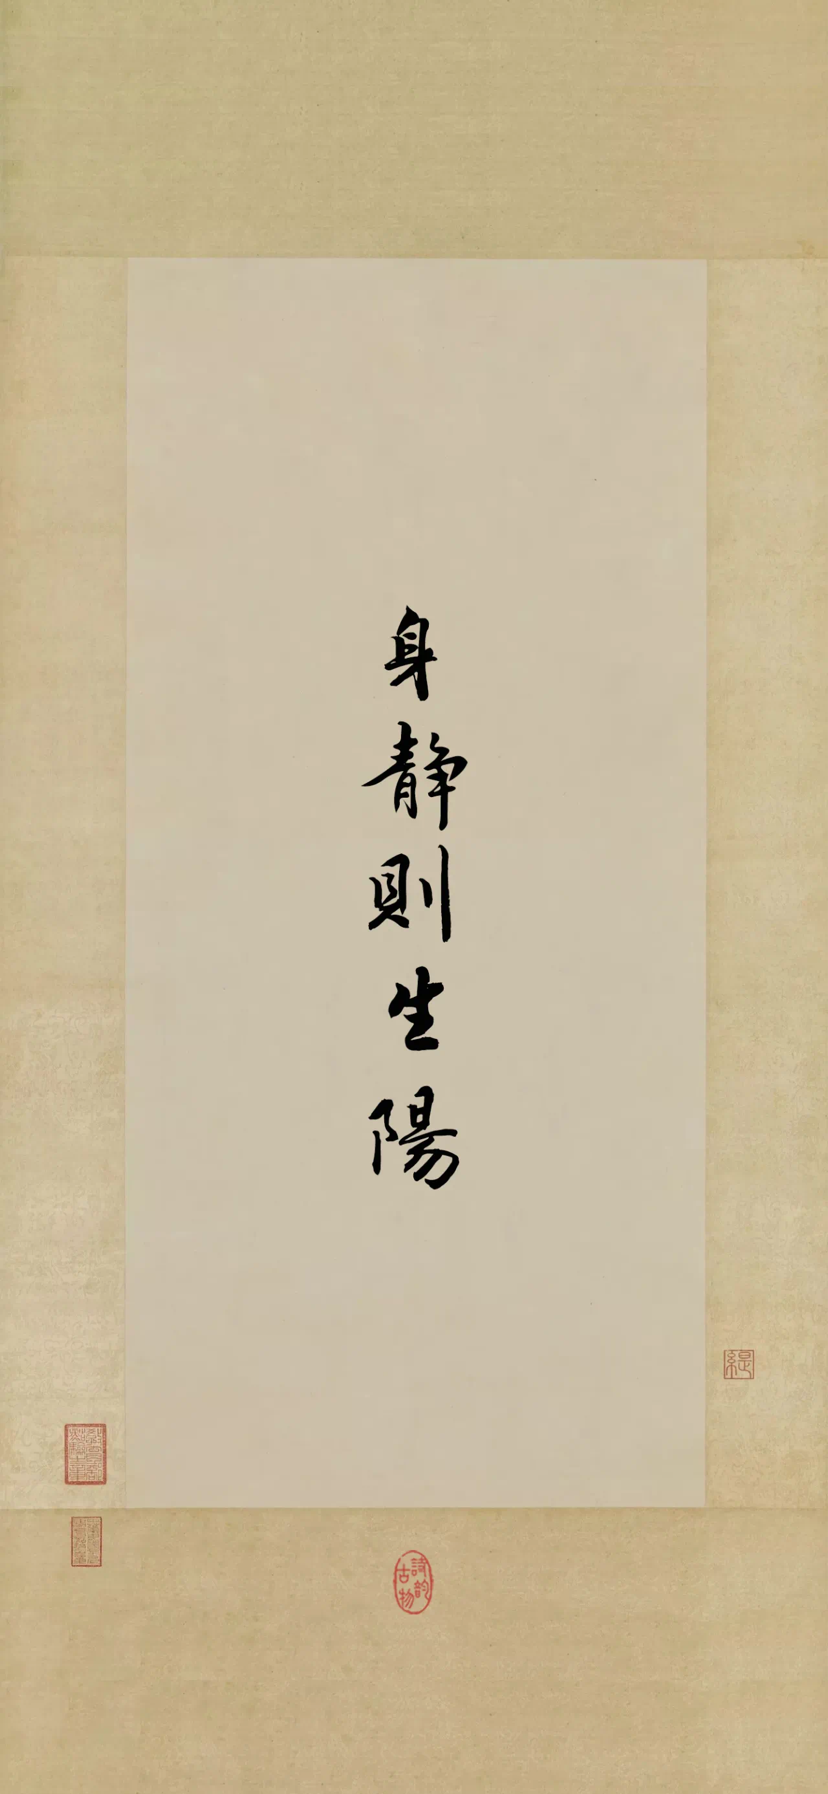 身静則生陽
緹
詩韵
古物